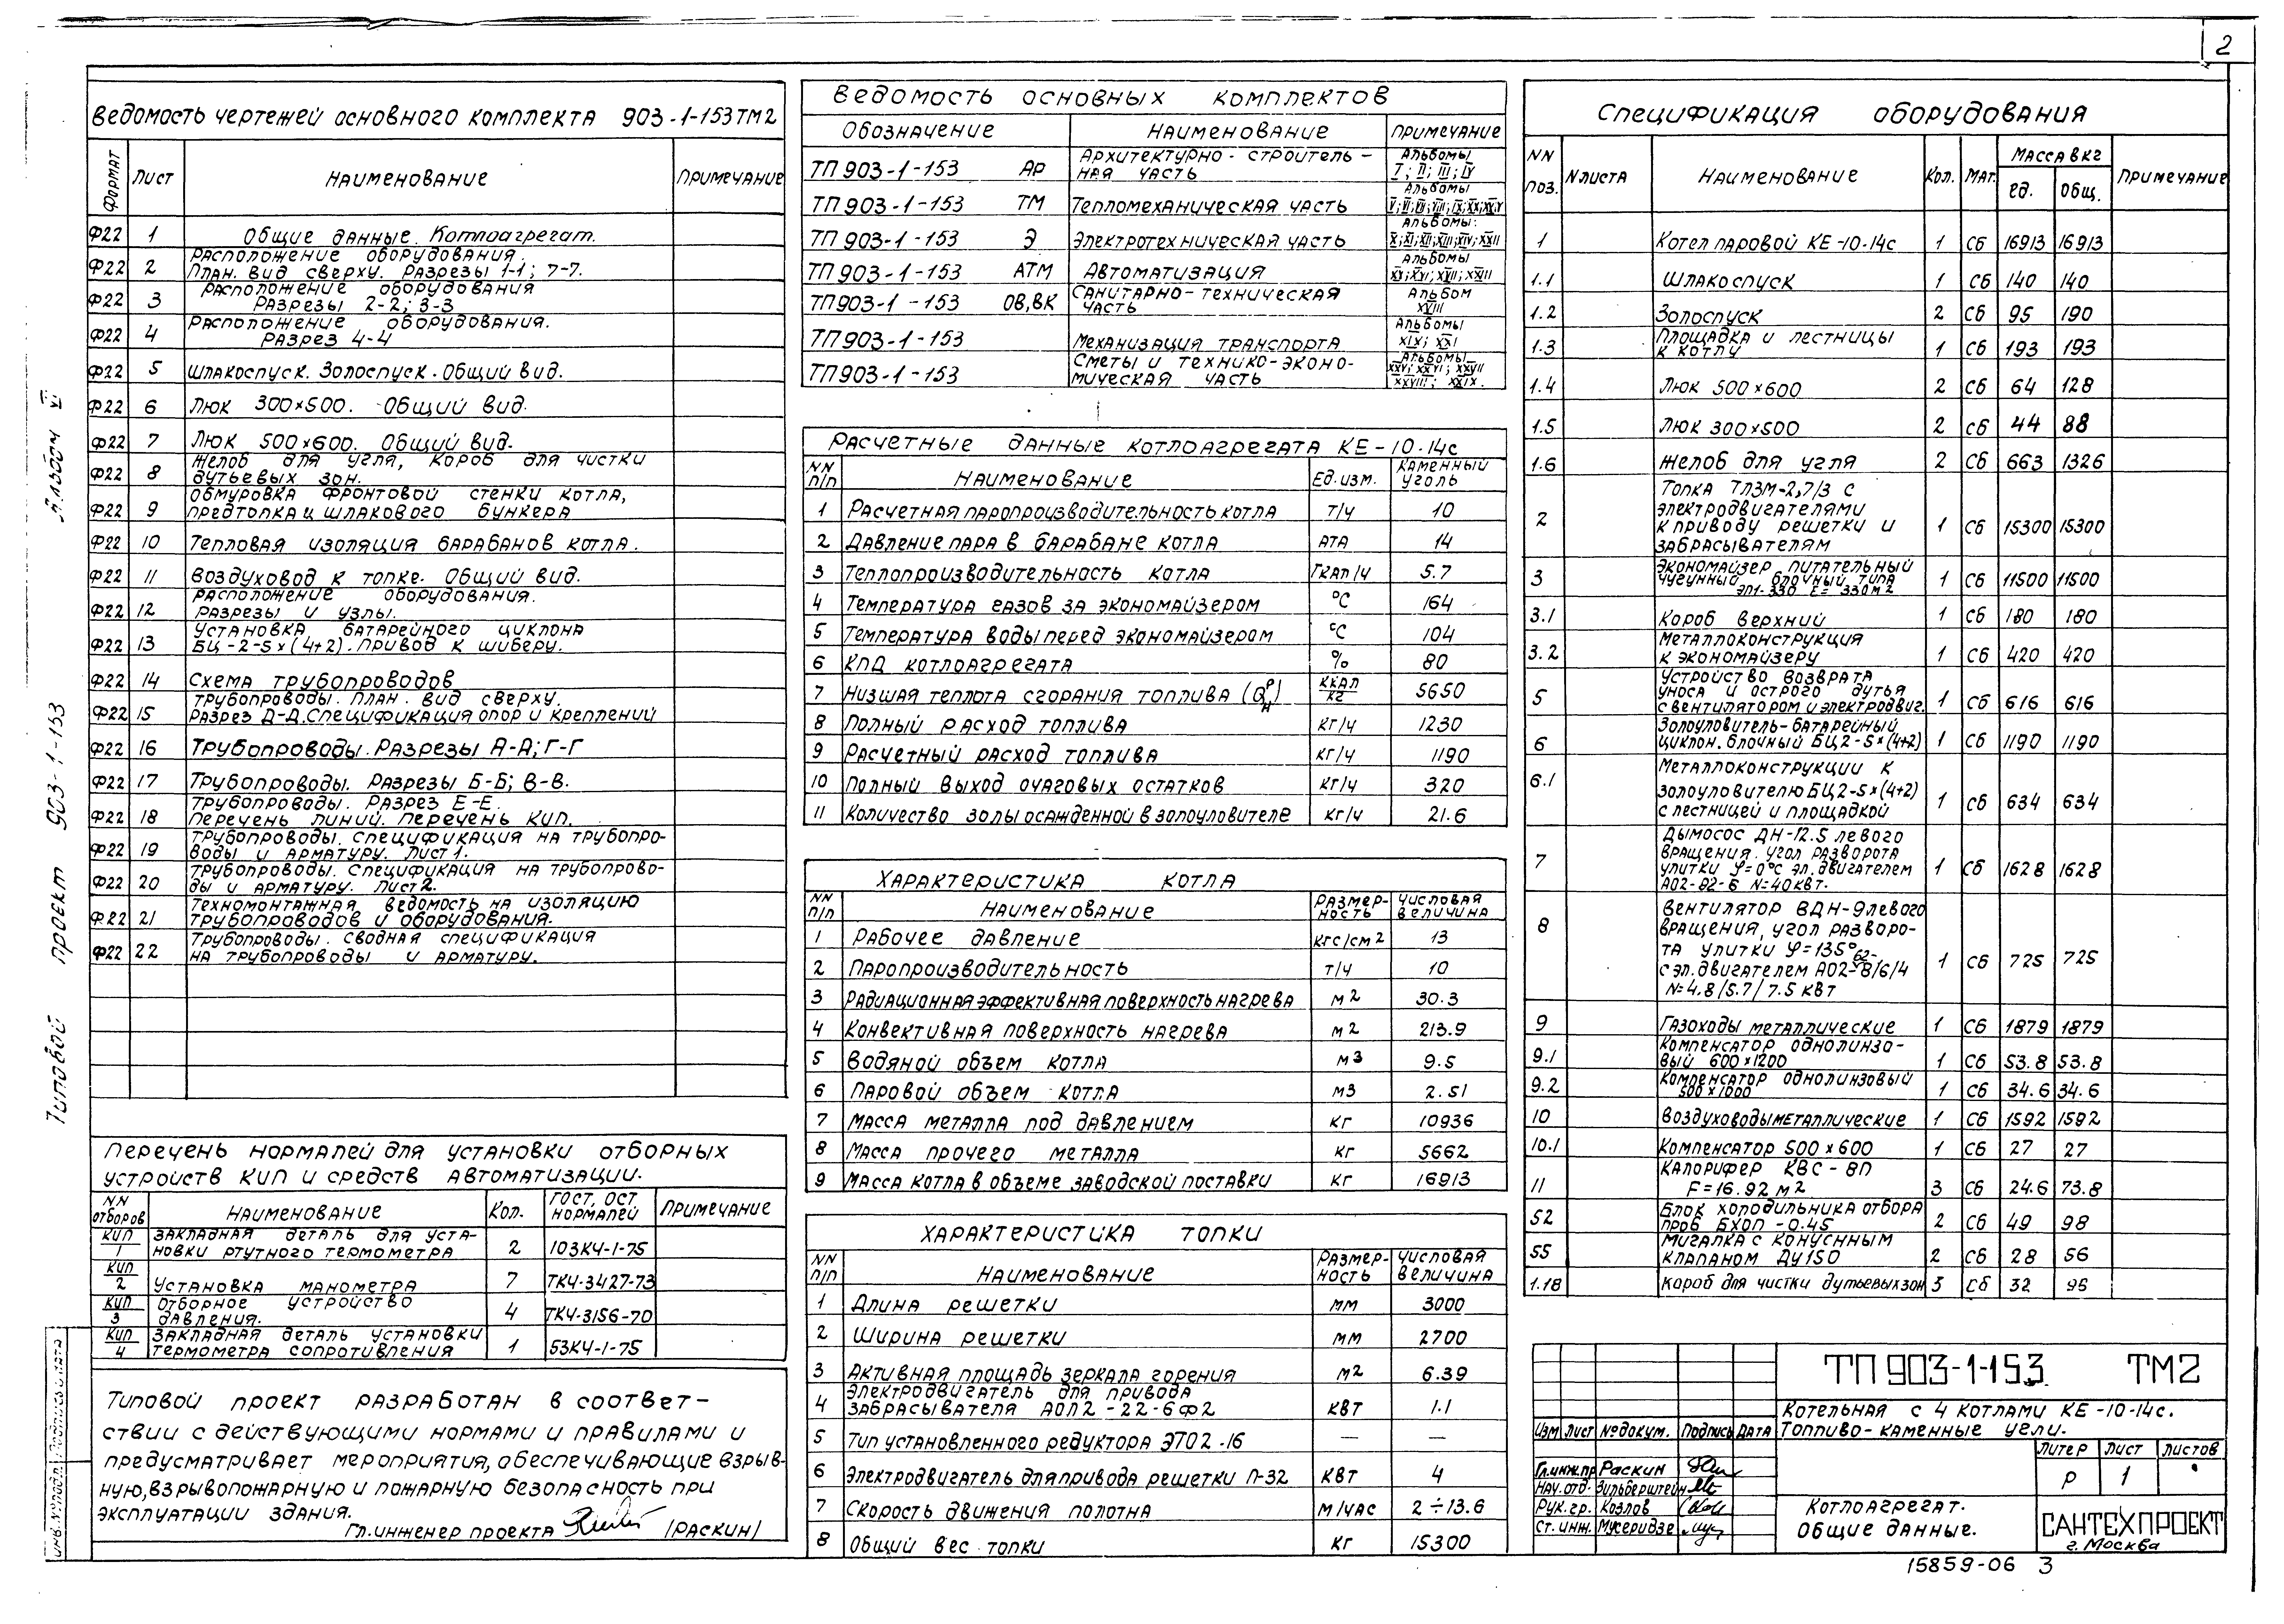 2
Ведомость чертежей основного комплекта 903-1-153 ТМ2
Формат Лист Наименование Примечание
Ф22 1 Общие данные. Котлоагрегат.
Ф22 2 Расположение оборудования. План. Вид сверху. Разрезы 1-1; 7-7.
Ф22 3 Расположение оборудования Разрезы 2-2; 3-3
Ф22 4 Расположение оборудования. Разрез 4-4
Ф22 5 Шлакоспуск. Золоспуск. Общий вид.
Ф22 6 Люк 300×500. Общий вид.
Ф22 7 Люк 500×600. Общий вид.
Ф22 8 Желоб для угля, короб для чистки дутьевых зон.
Ф22 9 Обмуровка фронтовой стенки котла, предтопка и шлакового бункера
Ф22 10 Тепловая изоляция барабанов котла.
Ф22 11 Воздуховод к топке. Общий вид.
Ф22 12 Расположение оборудования. Разрезы и узлы.
Ф22 13 Установка батарейного циклона БЦ-2-5×(4+2). Привод к шиберу.
Ф22 14 Схема трубопроводов
Ф22 15 Трубопроводы. План. Вид сверху. Разрез Д-Д. Спецификация опор и креплений
Ф22 16 Трубопроводы. Разрезы А-А; Г-Г
Ф22 17 Трубопроводы. Разрезы Б-Б; В-В.
Ф22 18 Трубопроводы. Разрез Е-Е. Перечень линий. Перечень КИП.
Ф22 19 Трубопроводы. Спецификация на трубопроводы и арматуру. Лист 1.
Ф22 20 Трубопроводы. Спецификация на трубопроводы и арматуру. Лист 2.
Ф22 21 Техномонтажная ведомость на изоляцию трубопроводов и оборудования.
Ф22 22 Трубопроводы. Сводная спецификация на трубопроводы и арматуру.
Перечень нормалей для установки отборных
устройств КИП и средств автоматизации.
NN отборов Наименование Кол. ГОСТ, ОСТ нормалей Примечание
КИП 1 Закладная деталь для установки ртутного термометра 2 103КЧ-1-75
КИП 2 Установка манометра 7 ТКЧ-3427-73
КИП 3 Отборное устройство давления. 4 ТКЧ-3156-70
КИП 4 Закладная деталь установки термометра сопротивления 1 53КЧ-1-75
Типовой проект разработан в соответ-
ствии с действующими нормами и правилами и
предусматривает мероприятия, обеспечивающие взрыв-
ную, взрывопожарную и пожарную безопасность при
эксплуатации здания.
Гл. инженер проекта /Раскин/
Ведомость основных комплектов
Обозначение Наименование Примечание
ТП 903-1-153 АР Архитектурно-строительная часть Альбомы I; II; III; IV
ТП 903-1-153 ТМ Тепломеханическая часть Альбомы
ТП 903-1-153 Э Электротехническая часть Альбомы:
ТП 903-1-153 АТМ Автоматизация Альбомы
ТП 903-1-153 ОВ, ВК Санитарно-техническая часть Альбом XVIII
ТП 903-1-153 Механизация транспорта Альбомы XIX; XXI
ТП 903-1-153 Сметы и технико-экономическая часть Альбомы XXV; XXVI; XXVII XXVIII; XXIX.
Расчетные данные котлоагрегата КЕ-10-14с
NN п/п Наименование Ед. изм. Каменный уголь
1 Расчетная паропроизводительность котла т/ч 10
2 Давление пара в барабане котла ата 14
3 Теплопроизводительность котла Гкал/ч 5.7
4 Температура газов за экономайзером °С 164
5 Температура воды перед экономайзером °С 104
6 КПД котлоагрегата % 80
7 Низшая теплота сгорания топлива (Qнр) ккал/кг 5650
8 Полный расход топлива кг/ч 1230
9 Расчетный расход топлива кг/ч 1190
10 Полный выход очаговых остатков кг/ч 320
11 Количество золы осажденной в золоуловителе кг/ч 21.6
Характеристика котла
NN п/п Наименование Размерность Числовая величина
1 Рабочее давление кгс/см2 13
2 Паропроизводительность т/ч 10
3 Радиационная эффективная поверхность нагрева м2 30.3
4 Конвективная поверхность нагрева м2 213.9
5 Водяной объем котла м3 9.5
6 Паровой объем котла м3 2.51
7 Масса металла под давлением кг 10936
8 Масса прочего металла кг 5662
9 Масса котла в объеме заводской поставки кг 16913
Характеристика топки
NN п/п Наименование Размерность Числовая величина
1 Длина решетки мм 3000
2 Ширина решетки мм 2700
3 Активная площадь зеркала горения м2 6.39
4 Электродвигатель для привода забрасывателя АОЛ2-22-6ф2 квт 1.1
5 Тип установленного редуктора ЭТО2-16 — —
6 Электродвигатель для привода решетки П-32 квт 4
7 Скорость движения полотна м/час 2÷13.6
8 Общий вес топки кг 15300
Спецификация оборудования
NN поз. N листа Наименование Кол. Мат. Масса в кг ед. общ. Примечание
1 Котел паровой КЕ-10-14с 1 Сб 16913 16913
1.1 Шлакоспуск 1 Сб 140 140
1.2 Золоспуск 2 Сб 95 190
1.3 Площадка и лестницы к котлу 1 Сб 193 193
1.4 Люк 500×600 2 Сб 64 128
1.5 Люк 300×500 2 Сб 44 88
1.6 Желоб для угля 2 Сб 663 1326
2 Топка ТЛЗМ-2,7/3 с электродвигателями к приводу решетки и забрасывателям 1 Сб 15300 15300
3 Экономайзер питательный чугунный блочный типа ЭП1-330 F=330м2 1 Сб 11500 11500
3.1 Короб верхний 1 Сб 180 180
3.2 Металлоконструкция к экономайзеру 1 Сб 420 420
5 Устройство возврата уноса и острого дутья с вентилятором и электродвиг. 1 Сб 616 616
6 Золоуловитель-батарейный циклон. блочный БЦ2-5×(4+2) 1 Сб 1190 1190
6.1 Металлоконструкции к золоуловителю БЦ2-5×(4+2) с лестницей и площадкой 1 Сб 634 634
7 Дымосос ДН-12.5 левого вращения. угол разворота улитки φ=0°с эл. двигателем АО2-82-6 N=40квт. 1 Сб 1628 1628
8 Вентилятор ВДН-9 левого вращения, угол разворота улитки φ=135° с эл. двигателем АО2-62-8/6/4 N=4.8/5.7/7.5 квт 1 Сб 725 725
9 Газоходы металлические 1 Сб 1879 1879
9.1 Компенсатор однолинзовый 600×1200 1 Сб 53.8 53.8
9.2 Компенсатор однолинзовый 500×1000 1 Сб 34.6 34.6
10 Воздуховоды металлические 1 Сб 1592 1592
10.1 Компенсатор 500×600 1 Сб 27 27
11 Калорифер КВС-8П F=16.92 м2 3 Сб 24.6 73.8
52 Блок холодильника отбора проб БХОП-0.45 2 Сб 49 98
55 Мигалка с конусным клапаном Ду150 2 Сб 28 56
1.18 Короб для чистки дутьевых зон 3 Сб 32 96
ТП 903-1-153 ТМ2
Котельная с 4 котлами КЕ-10-14с.
Топливо-каменные угли.
Изм Лист № докум. Подпись Дата
Гл.инж.пр Раскин
Нач. отд. Зильберштейн
Рук. гр. Козлов
Ст. инж. Мусеридзе
Литер Лист Листов
Р 1
Котлоагрегат.
Общие данные.
САНТЕХПРОЕКТ
г. Москва
15859-06 3
Типовой проект 903-1-153 Альбом VI
Инв. № подл. Подпись и дата